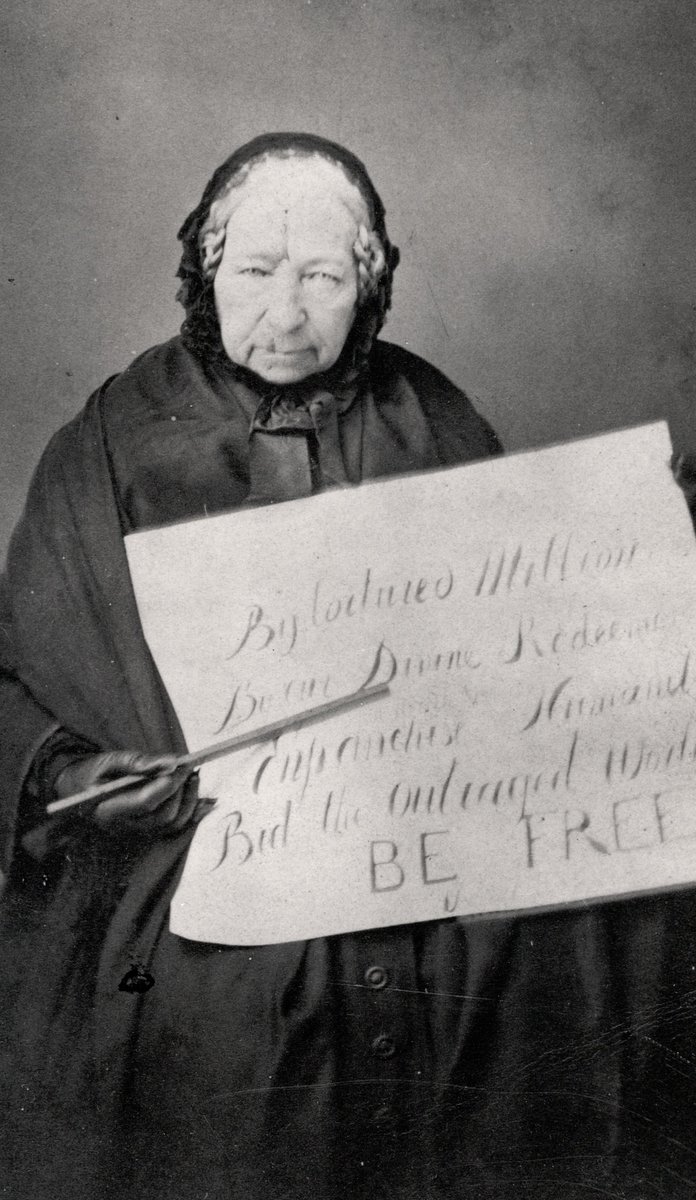 By tortured Million
By our Divine Redeemer
Enfranchise Humanit
Bid the Outraged Worl
BE FREE